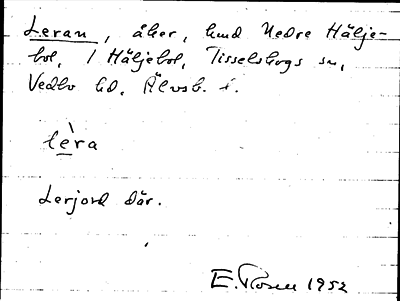 Leran, åker, hmd Nedre Hälje-
bol, / Häljebol, Tisselskogs sn,
Vedbo hd, Älvsb. l.
lèra
Lerjord där.
E. Rosen 1952